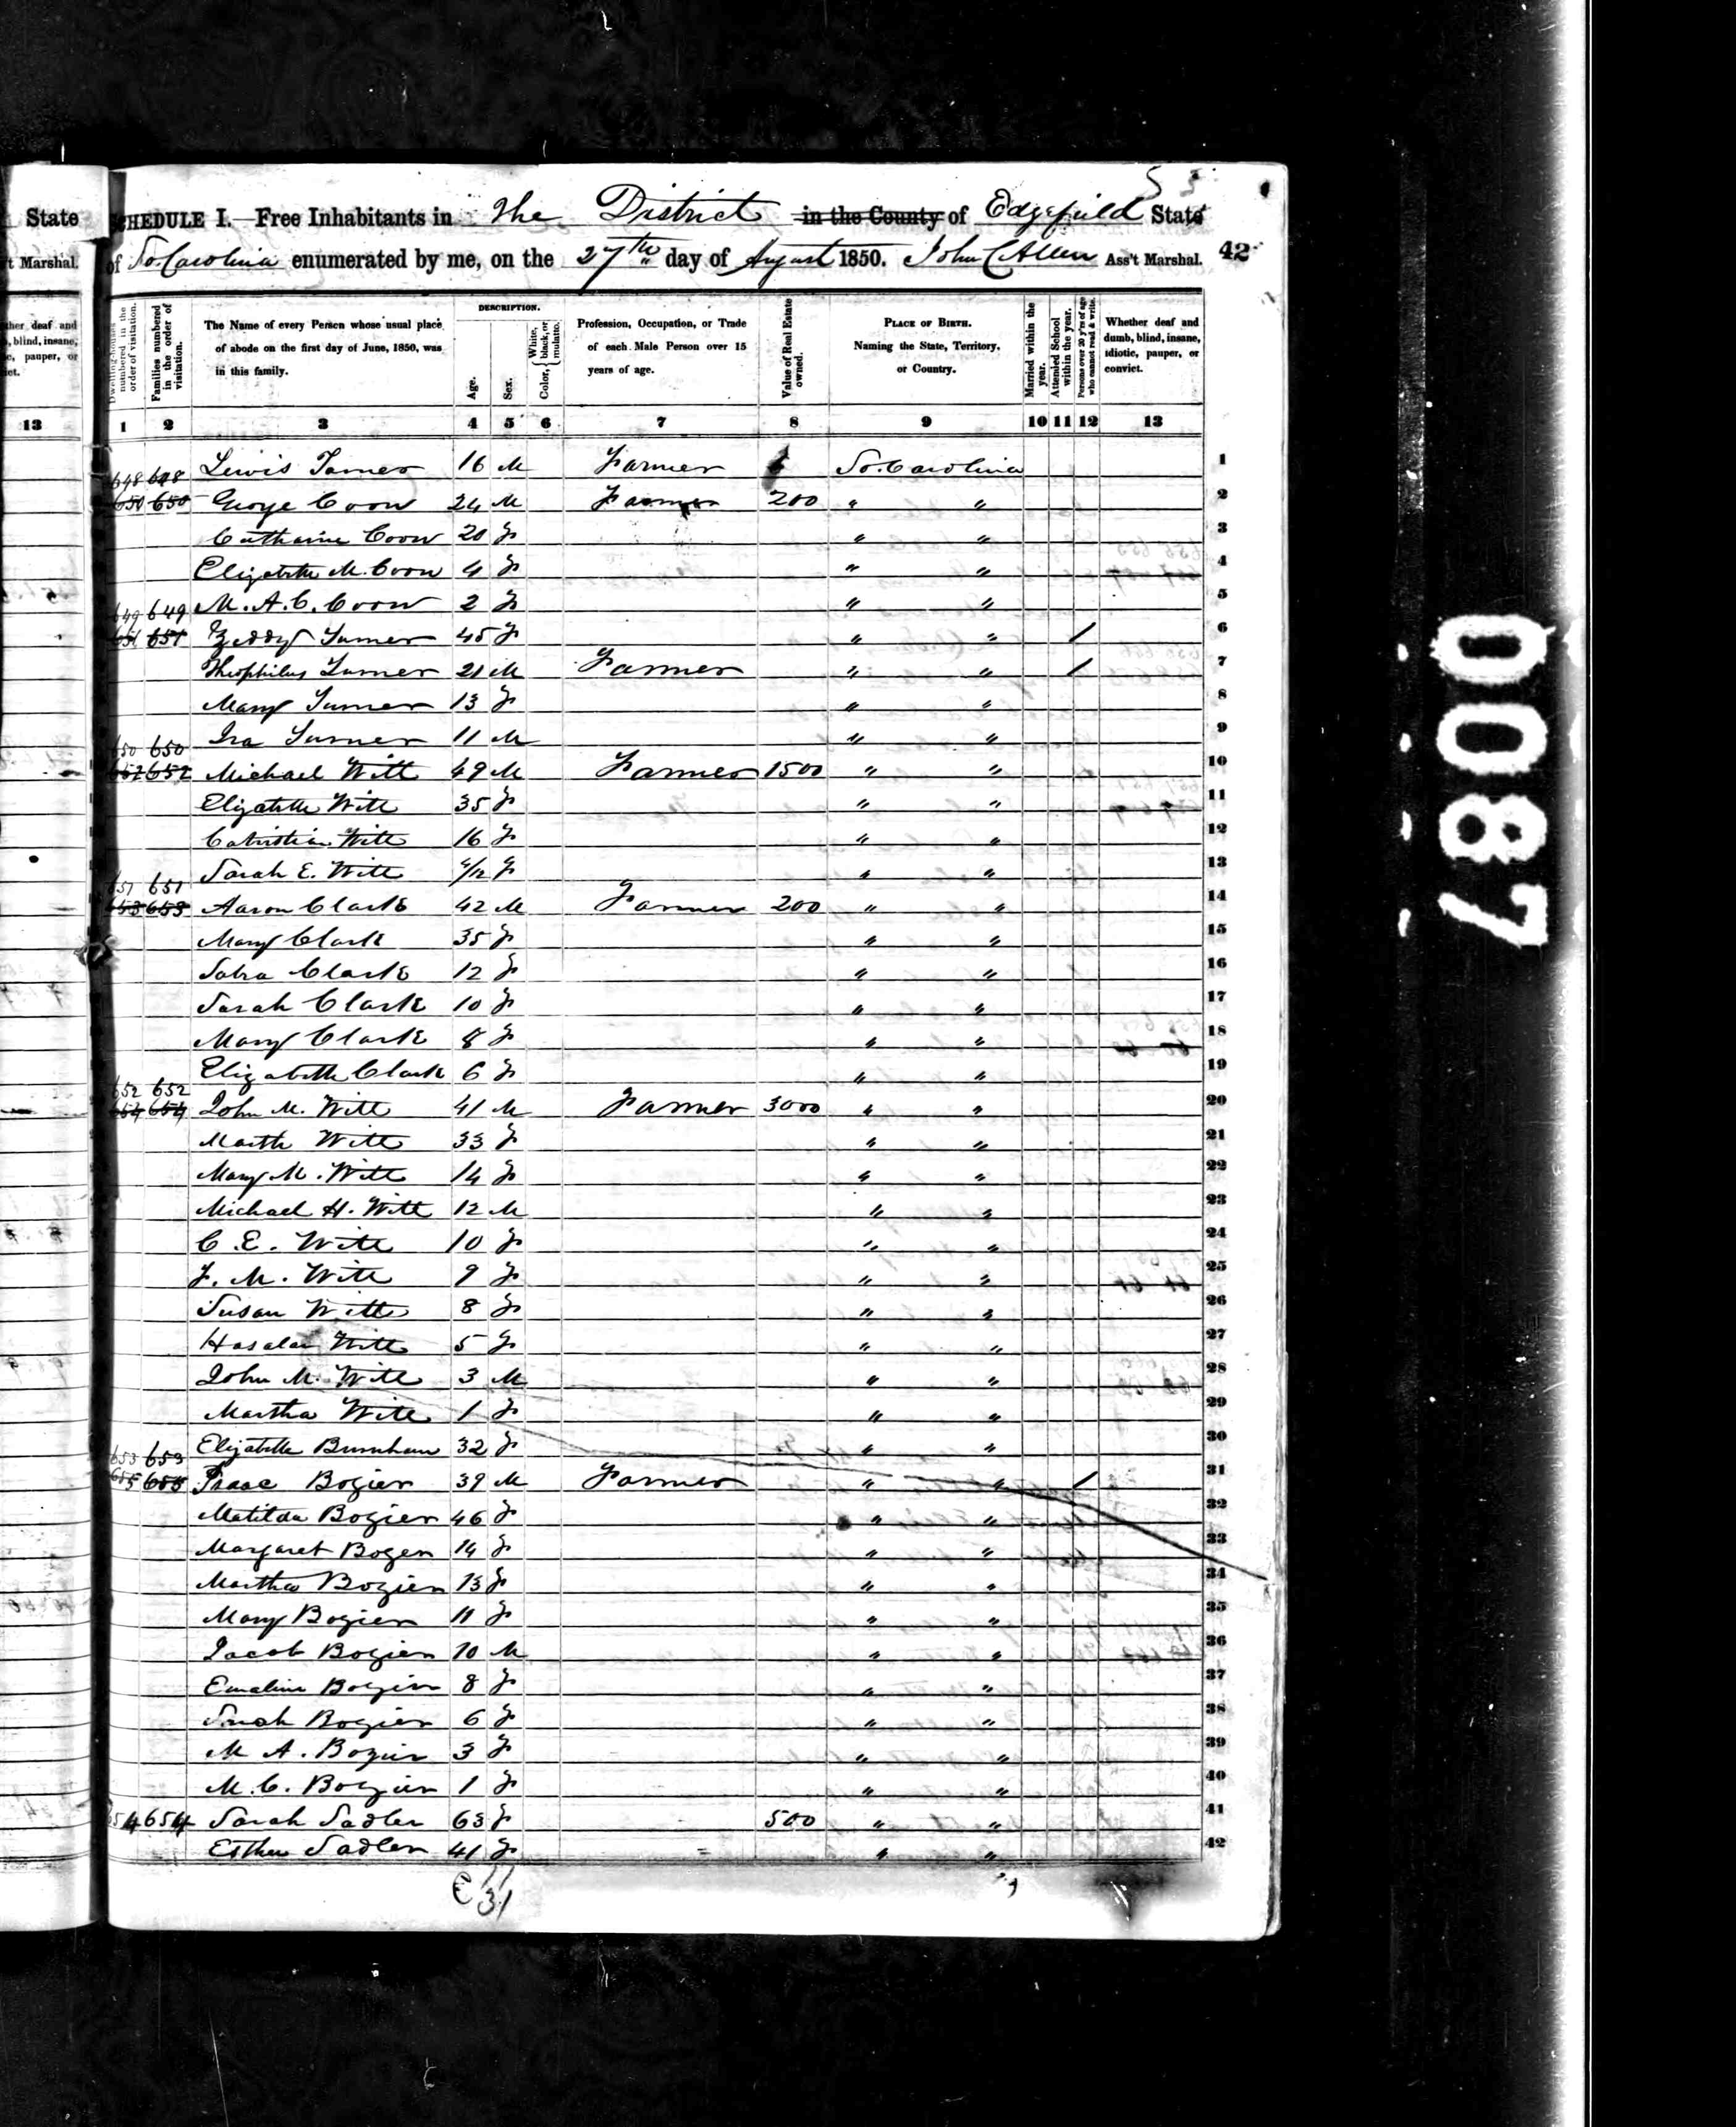 53
State SCHEDULE I.—Free Inhabitants in The District in the County of Edgefield State
t Marshal. of So Carolina enumerated by me, on the 27th day of August 1850. John C Allen Ass't Marshal. 42
DESCRIPTION.
Dwelling-houses numbered in the order of visitation.
Families numbered in the order of visitation.
The Name of every Person whose usual place of abode on the first day of June, 1850, was in this family.
Age.
Sex.
Color, { White, black, or mulatto.
Profession, Occupation, or Trade of each Male Person over 15 years of age.
Value of Real Estate owned.
PLACE OF BIRTH. Naming the State, Territory, or Country.
Married within the year.
Attended School within the year.
Persons over 20 y'rs of age who cannot read & write.
Whether deaf and dumb, blind, insane, idiotic, pauper, or convict.
13 1 2 3 4 5 6 7 8 9 10 11 12 13
Lewis Turner 16 M Farmer So. Carolina 1
648 648
650 650 George Coon 24 M Farmer 200 " " 2
Catharine Coon 20 F " " 3
Elizabeth M. Coon 4 F " " 4
M. A. C. Coon 2 F " " 5
649 649
651 651 Zeddy Turner 45 F " " / 6
Theophilus Turner 21 M Farmer " " / 7
Mary Turner 13 F " " 8
Ira Turner 11 M " " 9
650 650
652 652 Michael Witt 49 M Farmer 1500 " " 10
Elizabeth Witt 35 F " " 11
Witt 16 F " " 12
Sarah E. Witt F " " 13
651 651
653 653 Aaron Clark 42 M Farmer 200 " " 14
Mary Clark 35 F " " 15
Clark 12 F " " 16
Sarah Clark 10 F " " 17
Mary Clark 8 F " " 18
Elizabeth Clark 6 F " " 19
652 652
654 654 John M. Witt 41 M Farmer 3000 " " 20
Marth Witt 33 F " " 21
Mary M. Witt 14 F " " 22
Michael H. Witt 12 M " " 23
C. E. Witt 10 F " " 24
F. M. Witt 9 F " " 25
Susan Witt 8 F " " 26
Witt 5 F " " 27
John M. Witt 3 M " " 28
Martha Witt 1 F " " 29
Elizabeth Burnham 32 F " " 30
653 653
655 655 Isaac Bozier 39 M Farmer " " / 31
Matilda Bozier 46 F " " 32
Margaret Bozer 14 F " " 33
Martha Bozier 13 F " " 34
Mary Bozier 11 F " " 35
Jacob Bozier 10 M " " 36
Emaline Bozier 8 F " " 37
Sarah Bozier 6 F " " 38
M A. Bozier 3 F " " 39
M. C. Bozier 1 F " " 40
654 654 Sarah Sadler 63 F 500 " " 41
Esther Sadler 41 F " " 42
31
0087